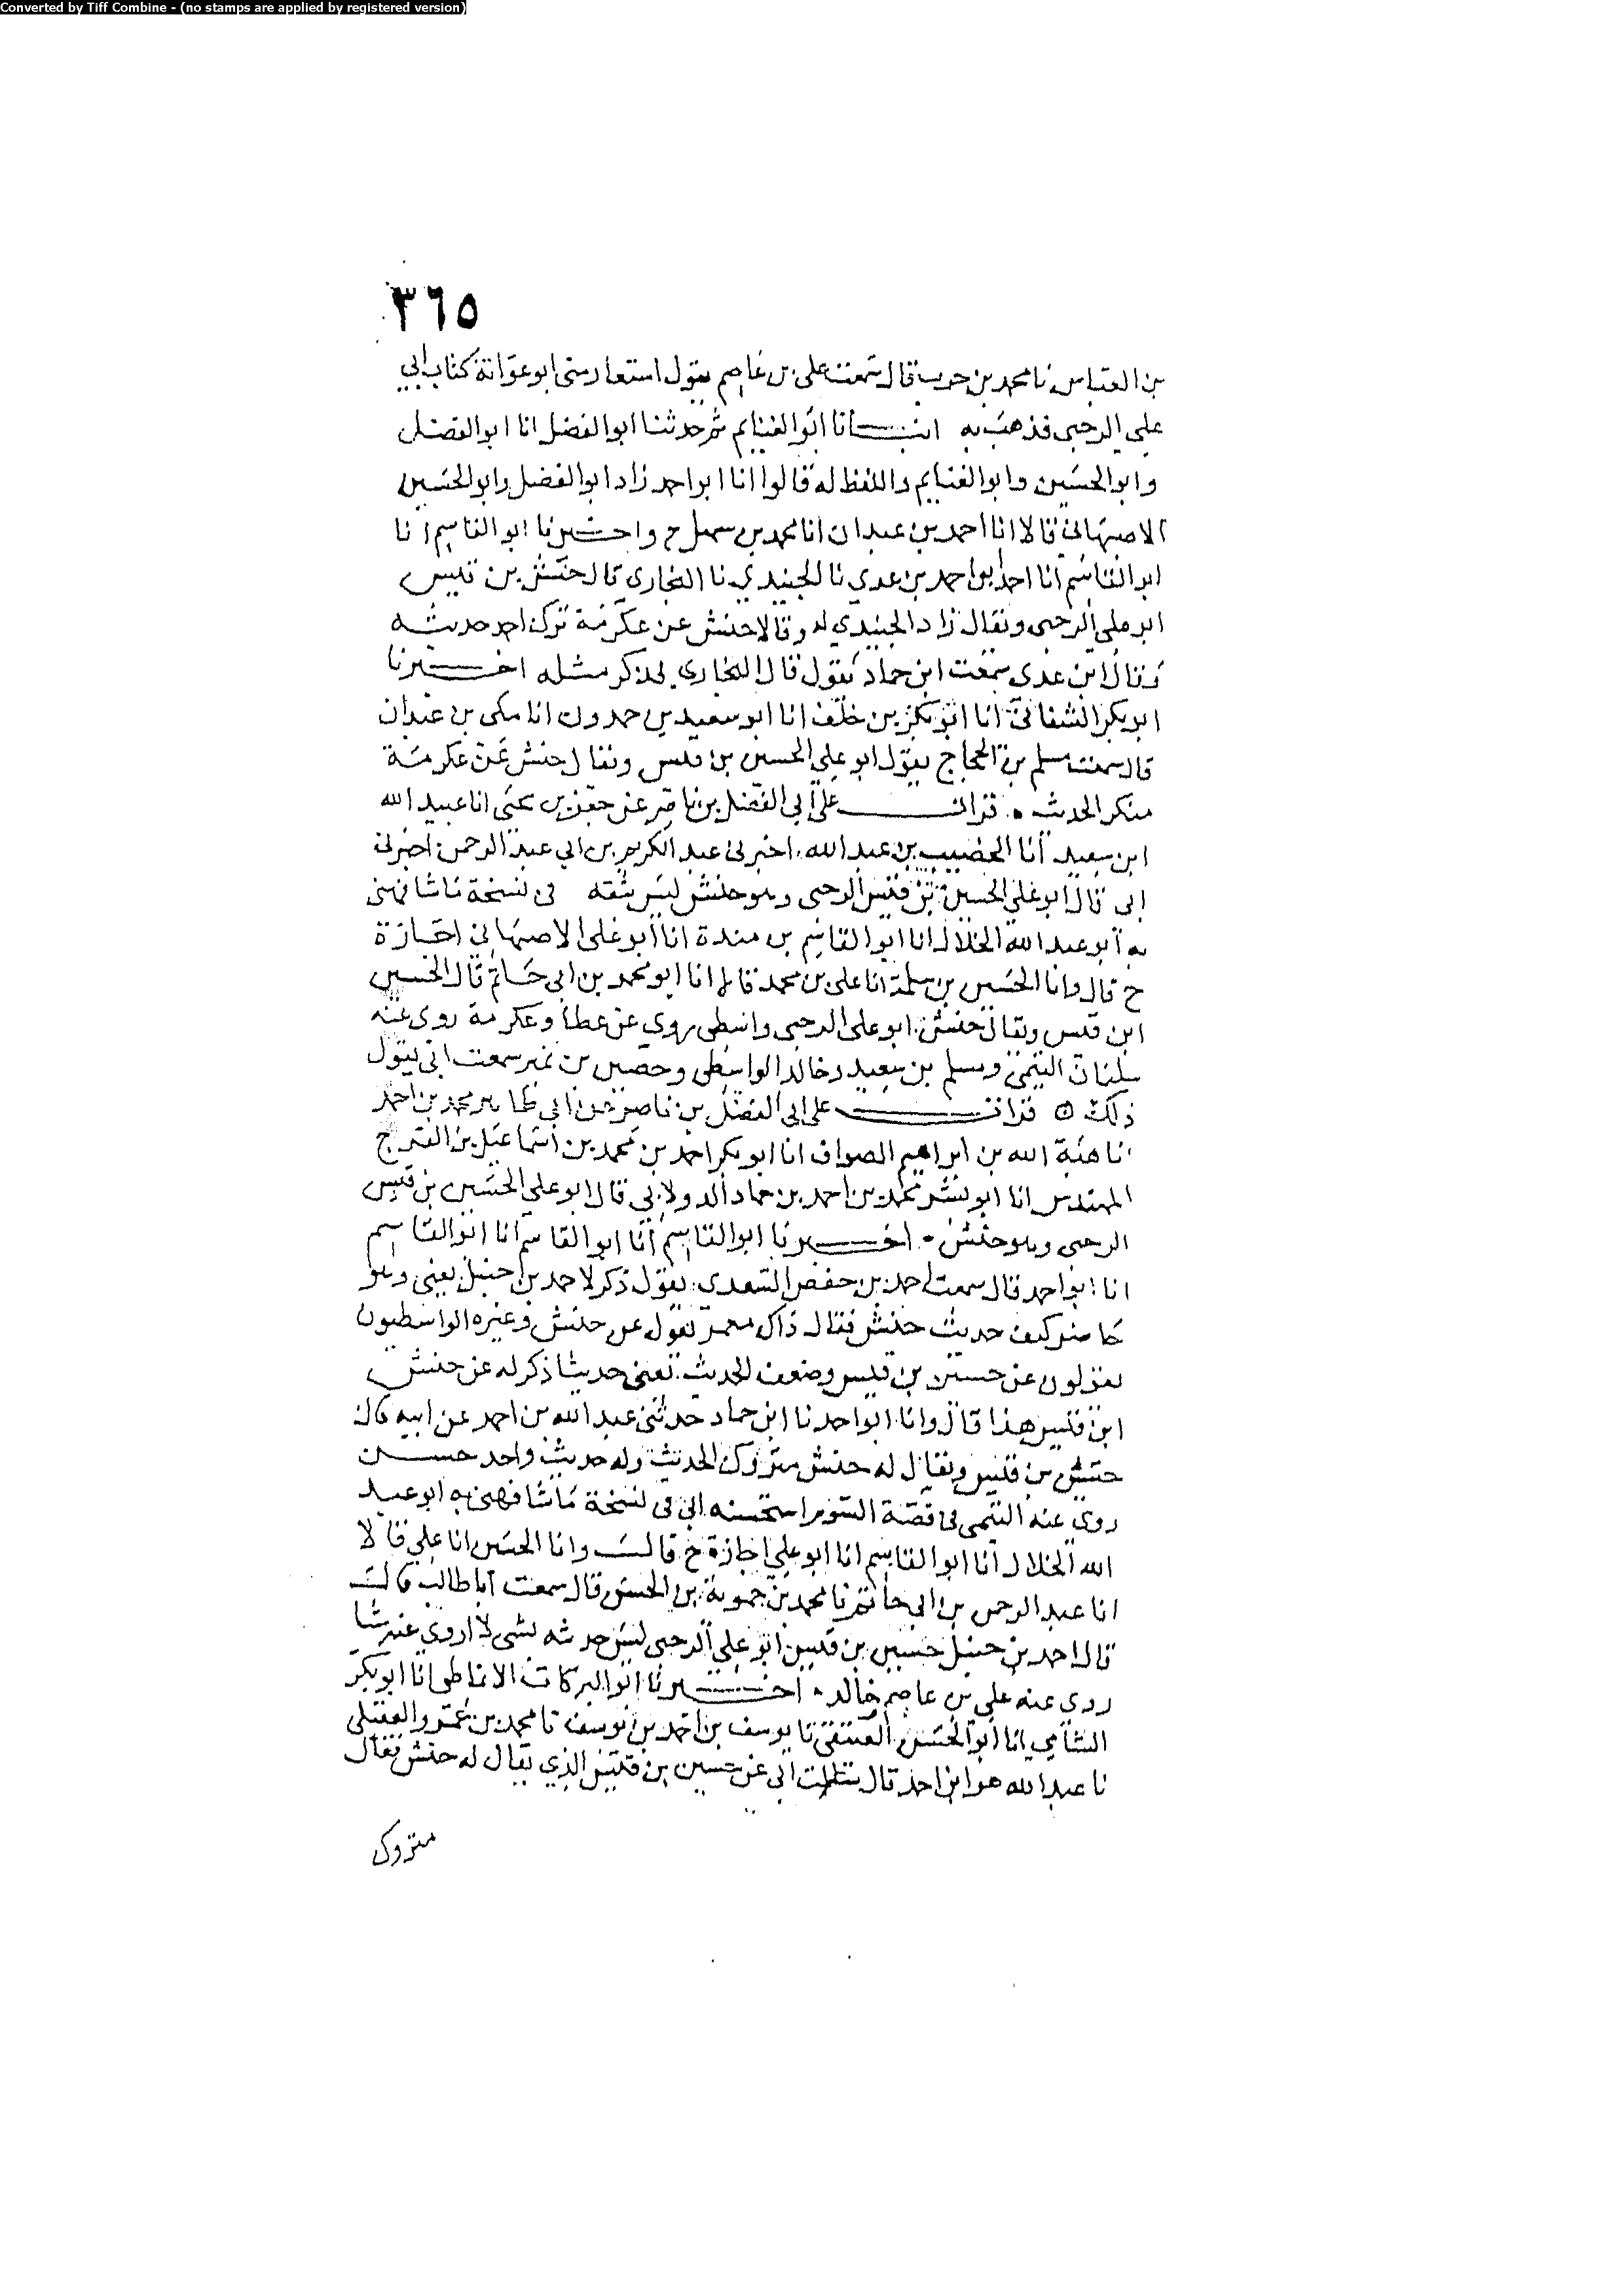 Converted by Tiff Combine - (no stamps are applied by registered version)
٣٦٥
بن العباس نا محمد بن حرب قال سمعت علي بن عاصم يقول استعار مني ابو عوانة كتاب ابي
علي الرحبي فذهب به انبـــانا ابو الغنايم ثم حدثنا ابو الفضل انا ابو الفضل
وابو الحسين وابو الغنايم واللفظ له قالوا انا ابو احمد زاد ابو الفضل وابو الحسين
الاصبهاني قالا انا احمد بن عبدان انا محمد بن سهل ح واخبرنا ابو القاسم انا
ابو القاسم انا احمد ابو احمد بن عدي نا الجنيدي نا البخاري قال حنش بن قيس
ابو علي الرحبي ويقال زاد الجنيدي له وقالا حنش عن عكرمة ترك احمد حديثه
وقال ابن عدي سمعت ابن حماد يقول قال البخاري فذكر مثله اخـــبرنا
ابو بكر الشقاني انا ابو بكر بن خلف انا ابو سعيد بن حمدون انا مكي بن عبدان
قال سمعت مسلم بن الحجاج يقول ابو علي الحسين بن قيس ويقال حنش عن عكرمة
منكر الحديث ه قراتـــ على ابي الفضل بن ناصر عن جعفر بن يحيى انا عبيد الله
ابن سعيد انا الخصيب بن عبد الله اخبرني عبد الكريم بن ابي عبد الرحمن اخبرني
ابي قال ابو علي الحسين بن قيس الرحبي وهو حنش ليس بثقه في نسخة ما شافهني
به ابو عبد الله الخلال انا ابو القاسم بن مندة انا ابو علي الاصبهاني اجازة
ح قال وانا الحسين بن سلمة انا علي بن محمد قالا انا ابو محمد بن ابي حاتم قال الحسين
ابن قيس ويقال حنش ابو علي الرحبي واسطي روي عن عطا وعكرمة روى عنه
سليمان التيمي ومسلم بن سعيد وخالد الواسطي وحصين بن نمير سمعت ابي يقول
ذلك ه قراتـــ على ابي الفضل بن ناصر عن ابي طاهر محمد بن احمد
انا هبة الله بن ابراهيم الصواف انا ابو بكر احمد بن محمد بن اسماعيل بن الفرج
المهندس انا ابو بشر محمد بن احمد بن حماد الدولابي قال ابو علي الحسين بن قيس
الرحبي وهو حنش . اخـــبرنا ابو القاسم انا ابو القاسم انا ابو القاسم
انا ابو احمد قال سمعت احمد بن حفص السعدي يقول ذكر لاحمد بن حنبل يعني وهو
حاضر كيف حديث حنش فقال ذاك معمر يقول عن حنش وغيره الواسطيون
يقولون عن حسين بن قيس وضعف الحديث يعني حديثا ذكر له عن حنش
ابن قيس هذا قال وانا ابو احمد نا ابن حماد حدثني عبد الله بن احمد عن ابيه قال
حنش بن قيس ويقال له حنش متروك الحديث وله حديث واحد حسن
روي عنه التيمي في قصة الشوم استحسنه ابي في نسخة ما شافهني به ابو عبد
الله الخلال انا ابو القاسم انا ابو علي اجازة ح قال وانا الحسين انا علي قالا
انا عبد الرحمن بن ابي حاتم نا محمد بن حمويه بن الحسن قال سمعت ابا طالب قال
قال احمد بن حنبل حسين بن قيس ابو علي الرحبي ليس حديثه بشي لا اروي عنه شيا
روي عنه علي بن عاصم خالد . اخـــبرنا ابو البركات الانماطي انا ابو بكر
الشامي انا ابو الحسن العتيقي نا يوسف بن احمد بن يوسف نا محمد بن عمرو العقيلي
نا عبد الله هو ابن احمد قال سالت ابي عن حسين بن قيس الذي يقال له حنش فقال
متروك